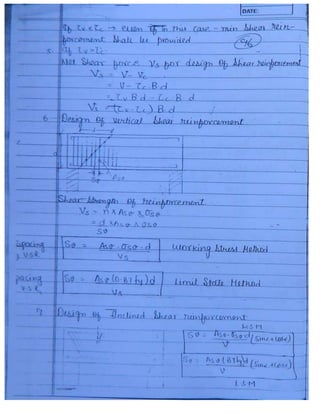 DATE:
If τv < τc → even if in this case - min shear rein-
forcement shall be provided
5. If τv > τc
Net Shear force Vs for design of shear reinforcement
Vs = V - Vc
= V - τc B d
= τv B d - τc B d
Vs = (τv - τc) B d
6. Design of vertical shear reinforcement
Sv Asv
Shear strength of reinforcement
Vs = n × Asv × σsv
= d × Asv × σsv
Sv
spacing Sv = Asv · σsv · d Working Stress Method
Vs
pacing Sv = Asv (0.87 fy) d Limit State Method
Vs
7. Design of Inclined shear reinforcement
Sv = Asv · σsv d (sinα + cosα)
V
Sv = Asv (.87fy) d (sinα + cosα)
V
LSM